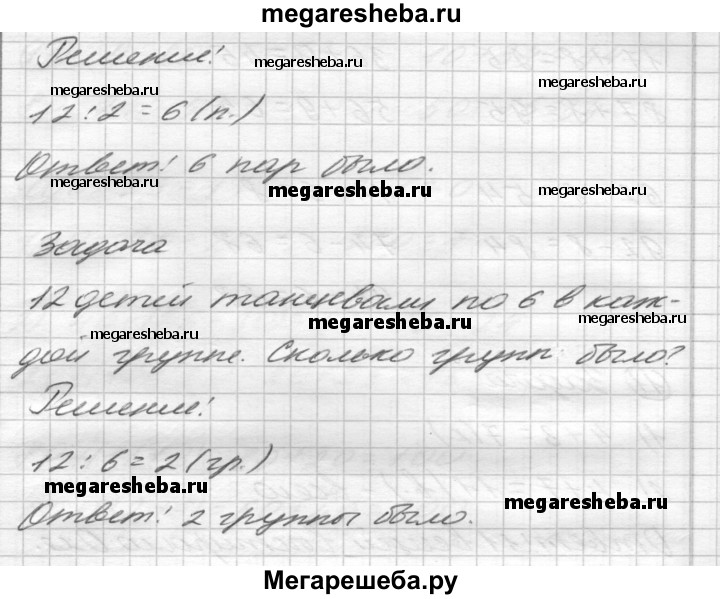 megaresheba.ru
Решение:
megaresheba.ru
megaresheba.ru
megaresheba.ru
12 : 2 = 6 (п.)
Ответ: 6 пар было.
megaresheba.ru
megaresheba.ru
megaresheba.ru
Задача
12 детей танцевали по 6 в каж-
megaresheba.ru
megaresheba.ru
megaresheba.ru
дой группе. Сколько групп было?
Решение:
12 : 6 = 2 (гр.)
megaresheba.ru
megaresheba.ru
Ответ: 2 группы было.
Мегарешеба.ру